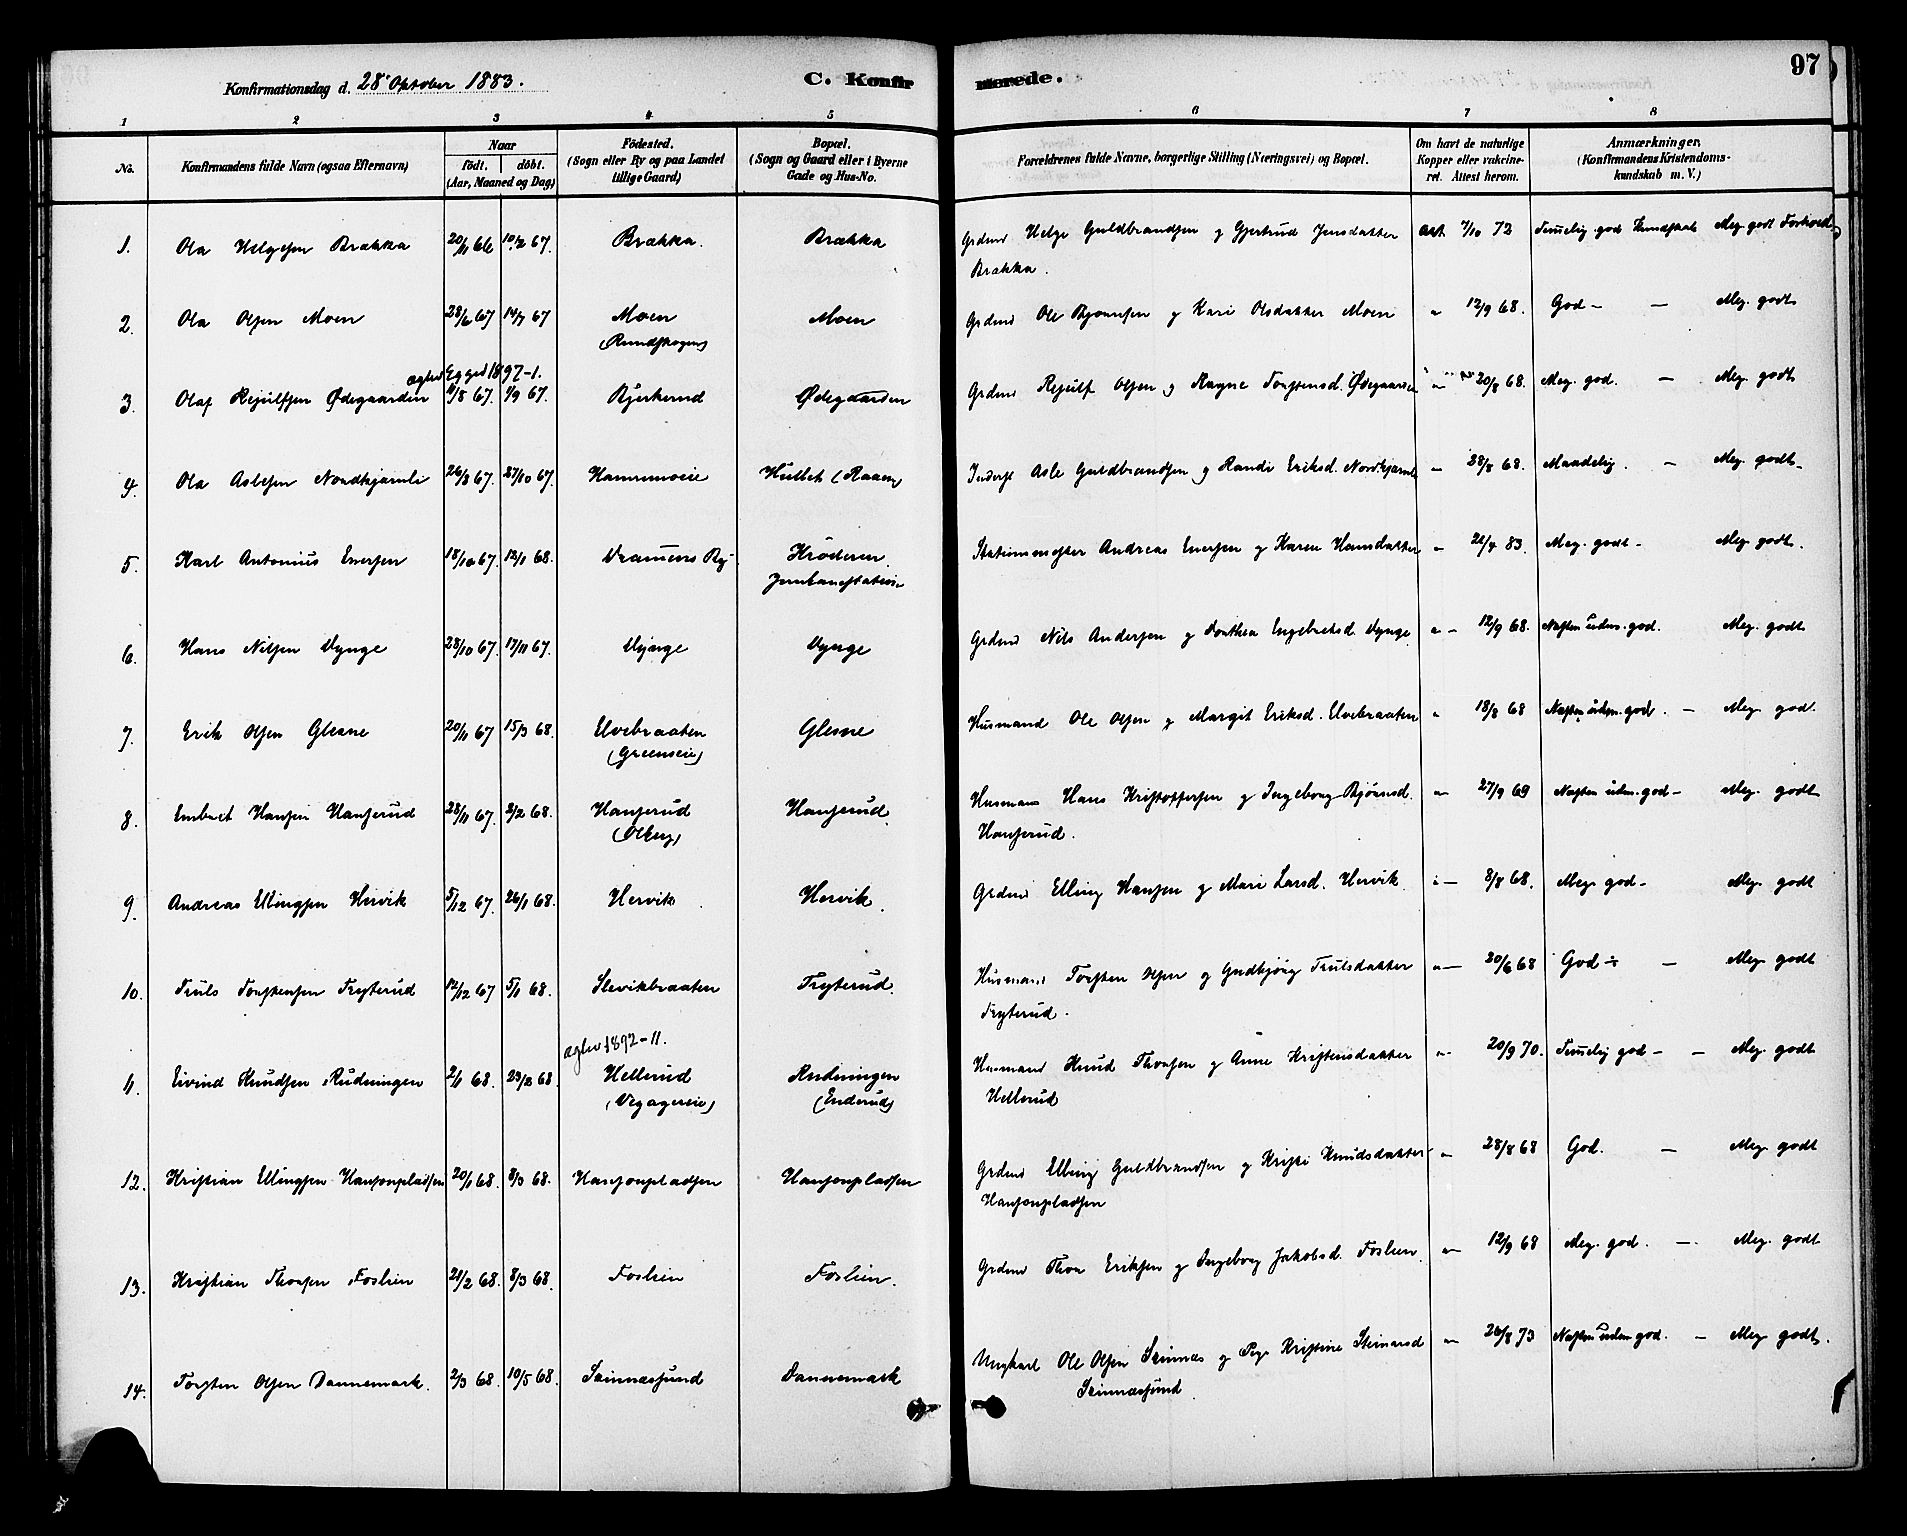 97
Konfirmationsdag d. 28de Oktober 1883.
C. Konfirmerede.
1 2 3 4 5 6 7 8
No.
Konfirmandens fulde Navn (ogsaa Efternavn)
Naar
födt. döbt.
(Aar, Maaned og Dag)
Födested.
(Sogn eller By og paa Landet
tillige Gaard)
Bopæl.
(Sogn og Gaard eller i Byerne
Gade og Hus-No.
Forældrenes fulde Navne, borgerlige Stilling (Næringsvei) og Bopæl.
Om havt de naturlige
Kopper eller vakcine-
ret. Attest herom.
Anmærkninger.
(Konfirmandens Kristendoms-
kundskab m. V.)
1. Ola Helgesen Brækka 20/11 66 10/2 67. Brækka. Brækka Grdmd Helge Guldbrandsen g Gjertrud Jensdatter att. 7/10 72 Temmelig god Kundskab Meg. godt Forhold
Brækka.
2. Ola Olsen Moen 28/6 67 14/7 67 Moen Moen Grdmd Ole Bjørnsen g Kari Olsdatter Moen " 12/9 68. God - — Meg. godt
(Rundskogen)
Egged 1897-1.
3. Olaf Rejulfsen Ødegaarden 11/8 67. 1/9 67. Bjerkerud Ødegaarden Grdmd Rejulf Olsen g Ragne Torstensd. Ødegaarden " 20/8 68. Meg. god. — Meg. godt
4. Ola Aslesen Nordhjærnli 26/8 67. 27/10 67. Hamremoeie Hullet (Raaen) Inderst Asle Guldbrandsen g Randi Eriksd. Nordhjærnli " 28/8 68. Maadelig. — Meg. godt-
5. Karl Antonius Enersen 18/10 67. 12/1 68. Dramens By Krøderen Stationsmester Andreas Enersen g Karen Hansdatter " 21/4 83. Meg. godt- Meg. godt.
Jernbanestation
6. Hans Nilsen Vynge 28/10 67. 17/11 67. Vynge Vynge Grdmd Nils Andersen g Dorthea Engebretsd. Vynge " 12/9 68. Næsten udm. god. Meg. godt
7. Erik Olsen Glesne 20/11 67 15/3 68. Elvebraaten Glesne Husmand Ole Olsen g Margit Eriksd. Elvebraaten " 18/8 68 Næsten udm. god. — Meg. god.
(Greenseie)
8. Embret Hansen Hanserud 28/11 67. 2/2 68. Hanserud Hanserud. Husmand Hans Kristoffersen g Ingeborg Bjørnsd. " 27/9 69 Næsten udm. god- Meg. godt
Hanserud.
9. Andreas Ellingsen Hervik 5/12 67. 26/1 68. Hervik Hervik. Grdmd Elling Hansen g Mari Larsd. Hervik " 8/8 68. Meg. god- Meg. godt
10. Truls Torstensen Tryterud 12/12 67 5/1 68. Slevikbraaten Tryterud. Husmand Torsten Olsen g Gudbjørg Trulsdatter " 20/6 68 God ÷ — Meg. godt
Tryterud.
aglev 1892-11.
11. Eivind Knudsen Rudningen 2/1 68. 23/2 68 Hellerud Rudningen Husmand Knud Thorsen g Anne Kristensdatter " 20/9 70. Temmelig god- — Meg. godt
(Vegagereie) (Enderud) Hellerud
12. Kristian Ellingsen Hansonpladsen 20/1 68. 8/3 68. Hansonpladsen Hansonpladsen Grdmd Elling Guldbrandsen g Kristi Knudsdatter " 28/8 68 God. — Meg. godt
Hansonpladsen
13. Kristian Thorsen Foslien 21/2 68. 8/3 68. Foslien Foslien. Grdmd Thor Eriksen g Ingeborg Jakobsd. Foslien " 12/9 68 Meg. god. — Meg. godt
14. Torsten Olsen Dannemark. 2/3 68. 10/5 68. Skinnæssund Dannemark Ungkarl Ole Olsen Skinnæs g Pige Kristine Steinarsd " 26/8 73 Næsten udm. god. — Meg. godt.
Skinnæssund.